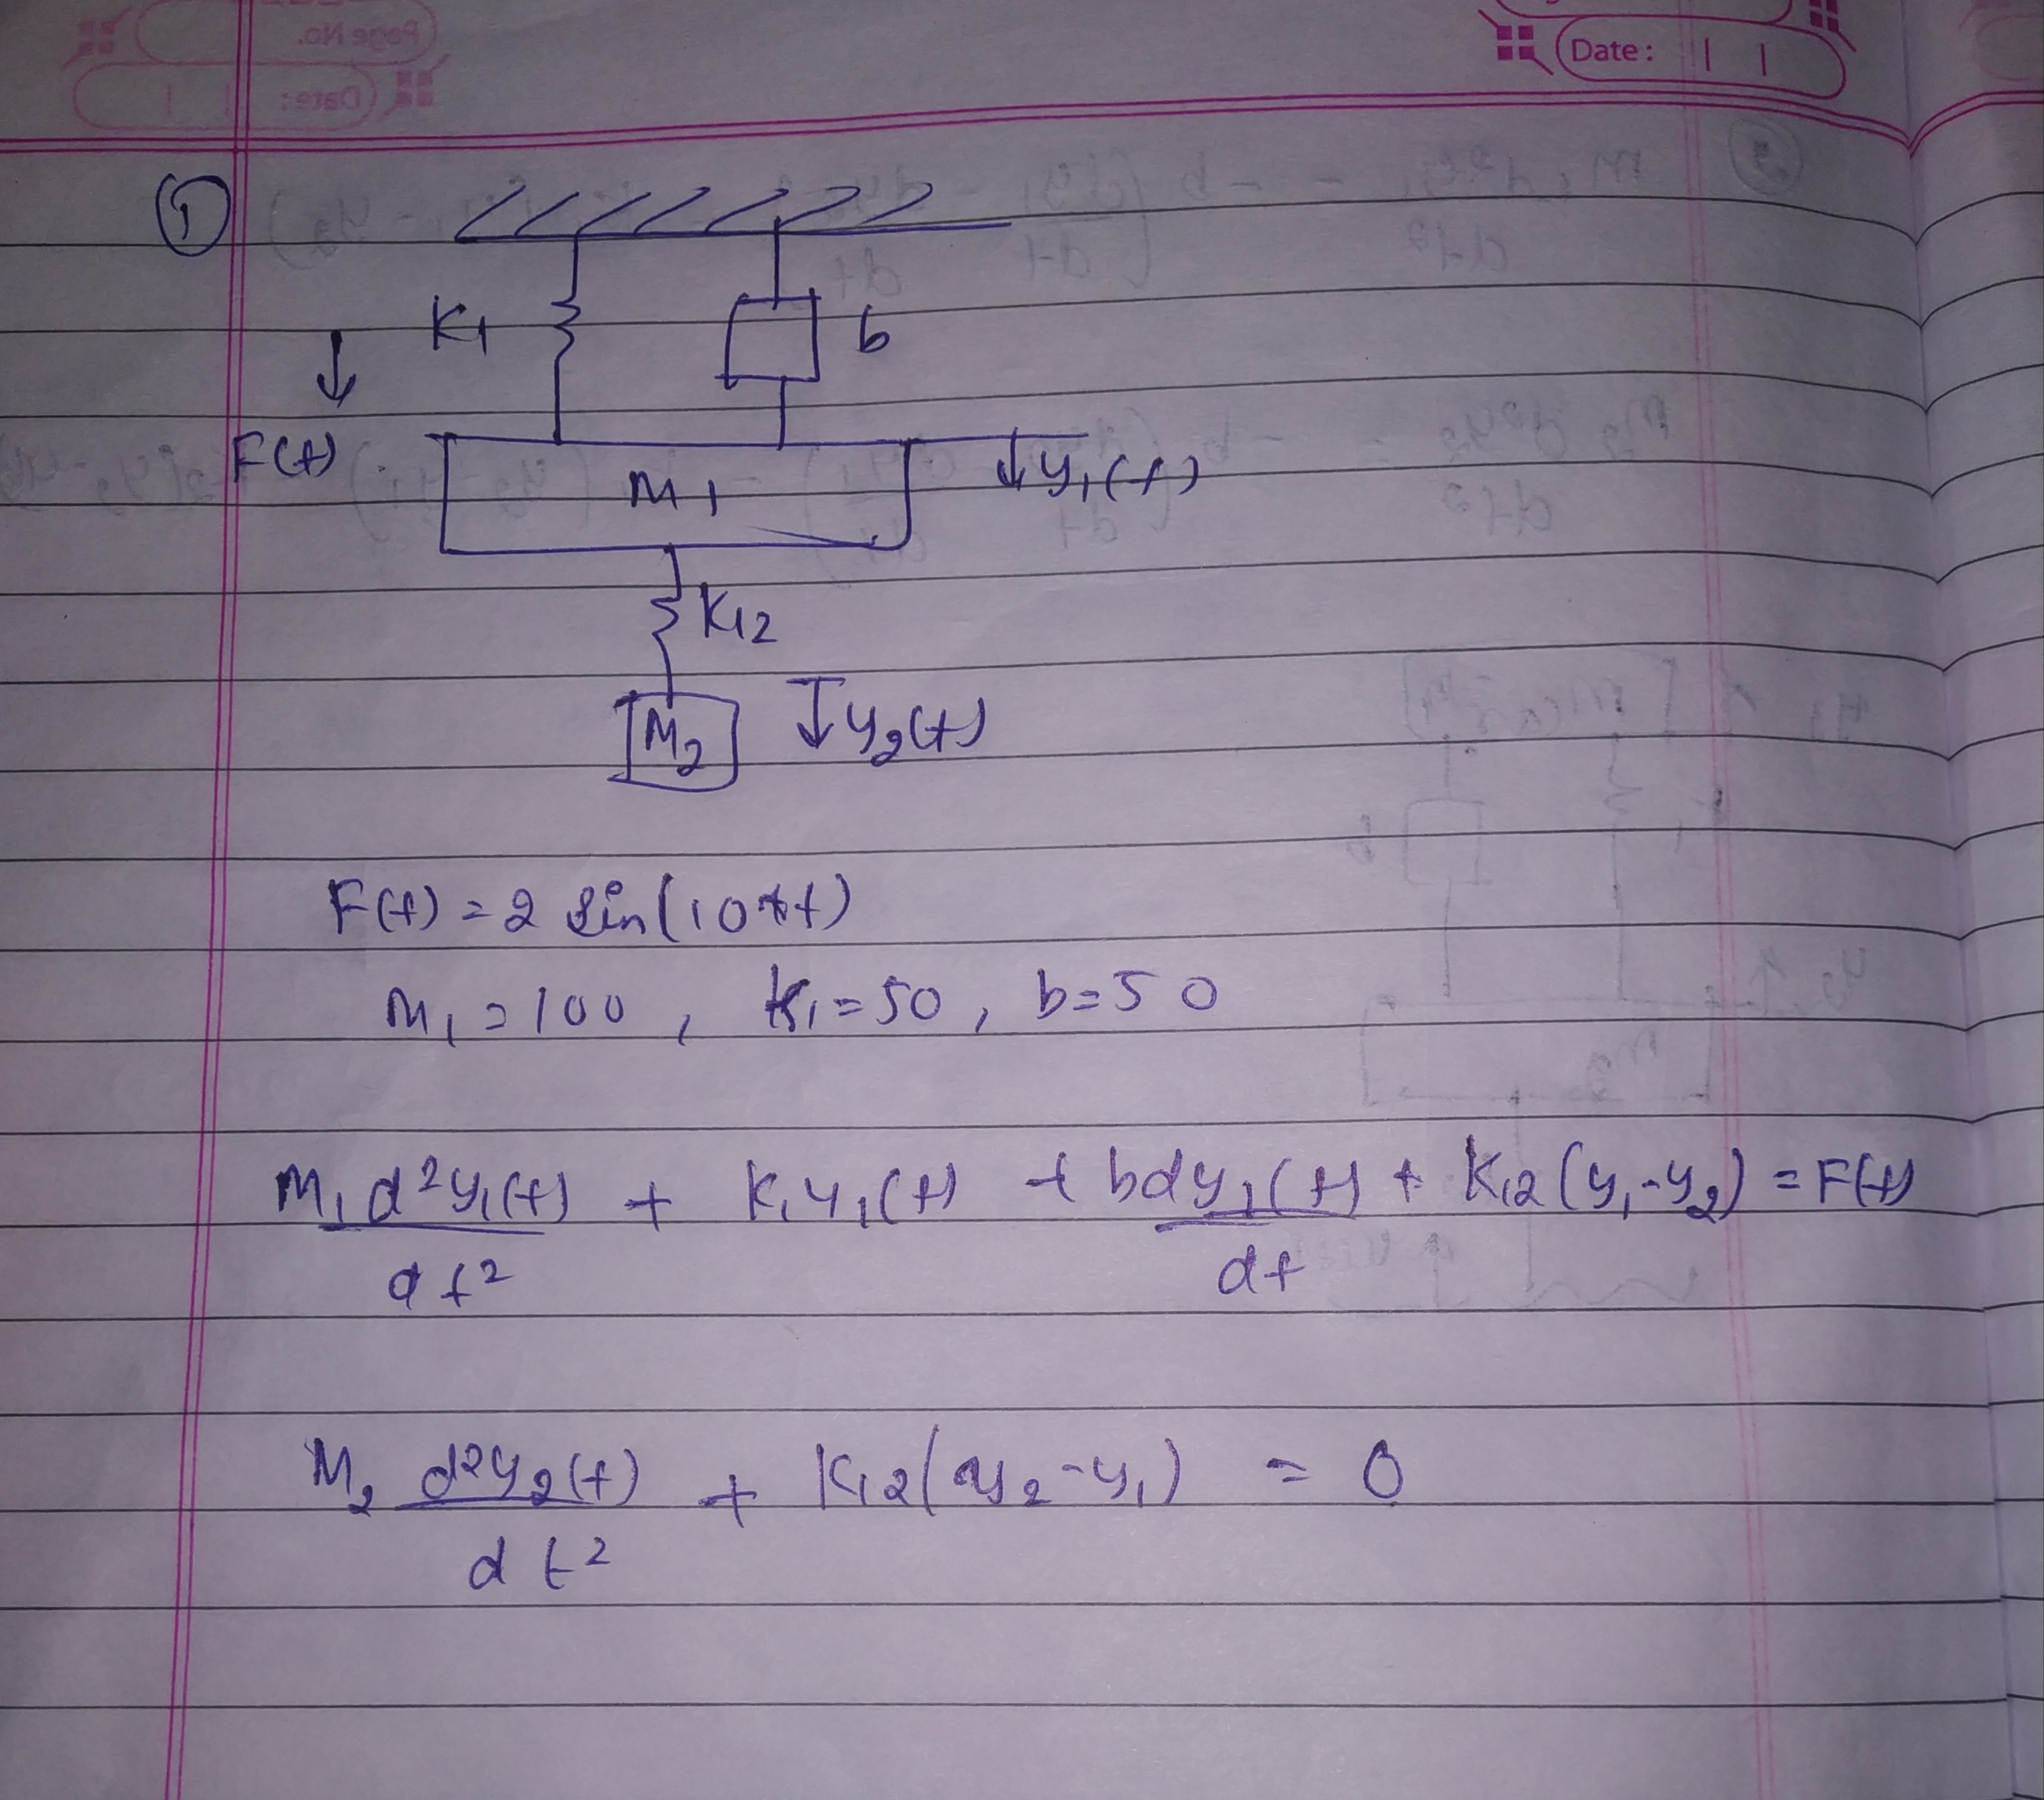 Page No.
Date:
Date:
1
K1
b
F(t)
M1
↓y1(t)
K12
M2
↓y2(t)
F(t) = 2 sin(10*t)
M1 = 100, K1 = 50, b = 50
M1 d²y1(t)/dt² + K1y1(t) + b dy1(t)/dt + K12(y1-y2) = F(t)
M2 d²y2(t)/dt² + K12(y2-y1) = 0